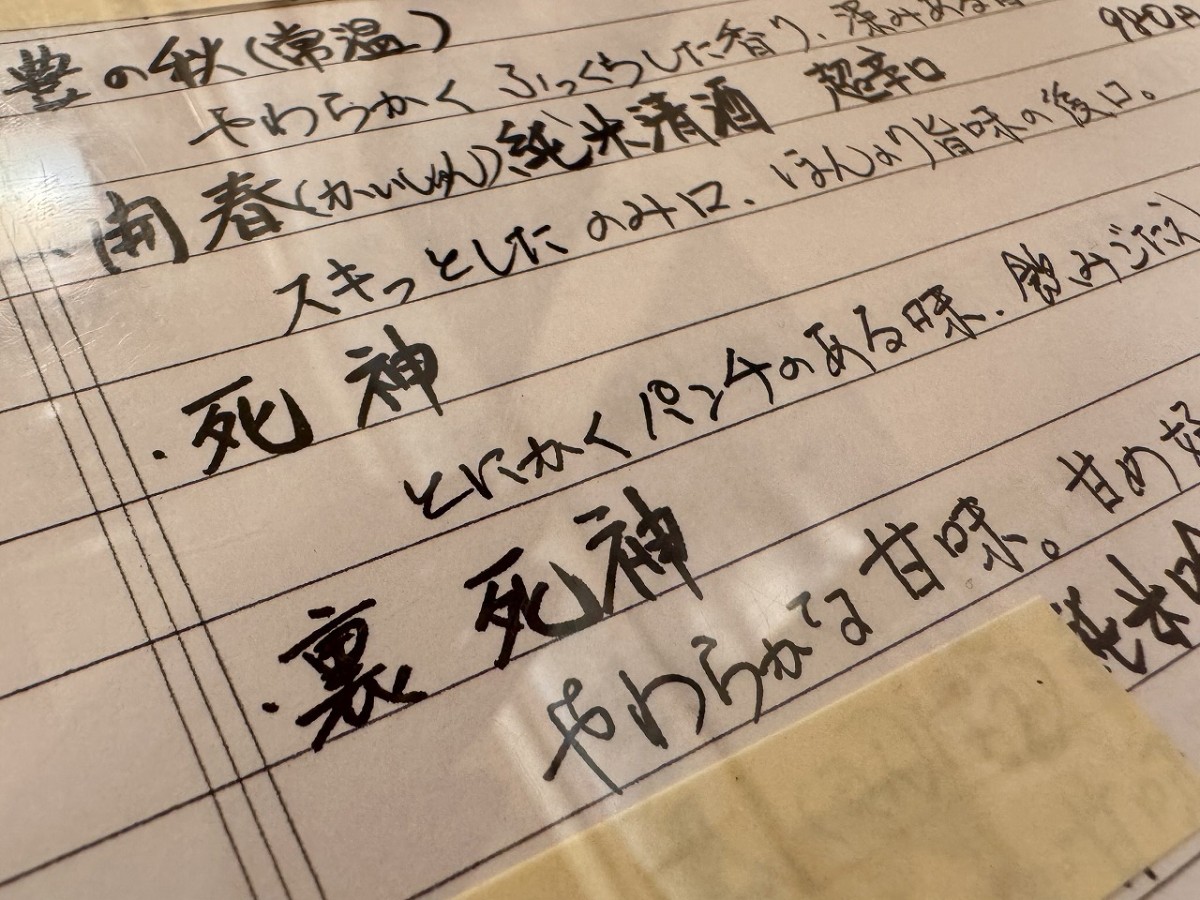 豊の秋(常温)
やわらかく ふっくらした香り、深みある
980円
・開春(かいしゅん)純米清酒 超辛口
スキっとしたのみ口、ほんのり旨味の後口。
・死神
とにかくパンチのある味、飲みごたえ
・裏死神
やわらかな甘味。甘め
純米吟